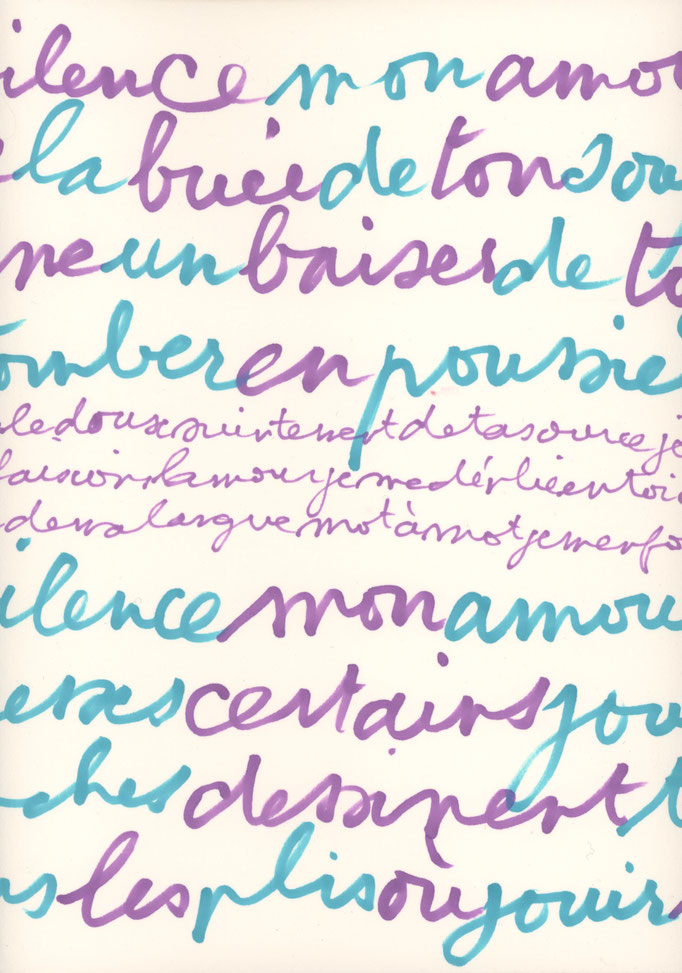 ilence mon amou
la buée de ton sou
ne un baiser de to
omber en poussiè
le doux suintement de ta source je
fais con l'amour je me délie en toi
de ma langue mot à mot je m'enfo
ilence mon amou
esses certains jou
ches dessinent t
ns les plis où jouir